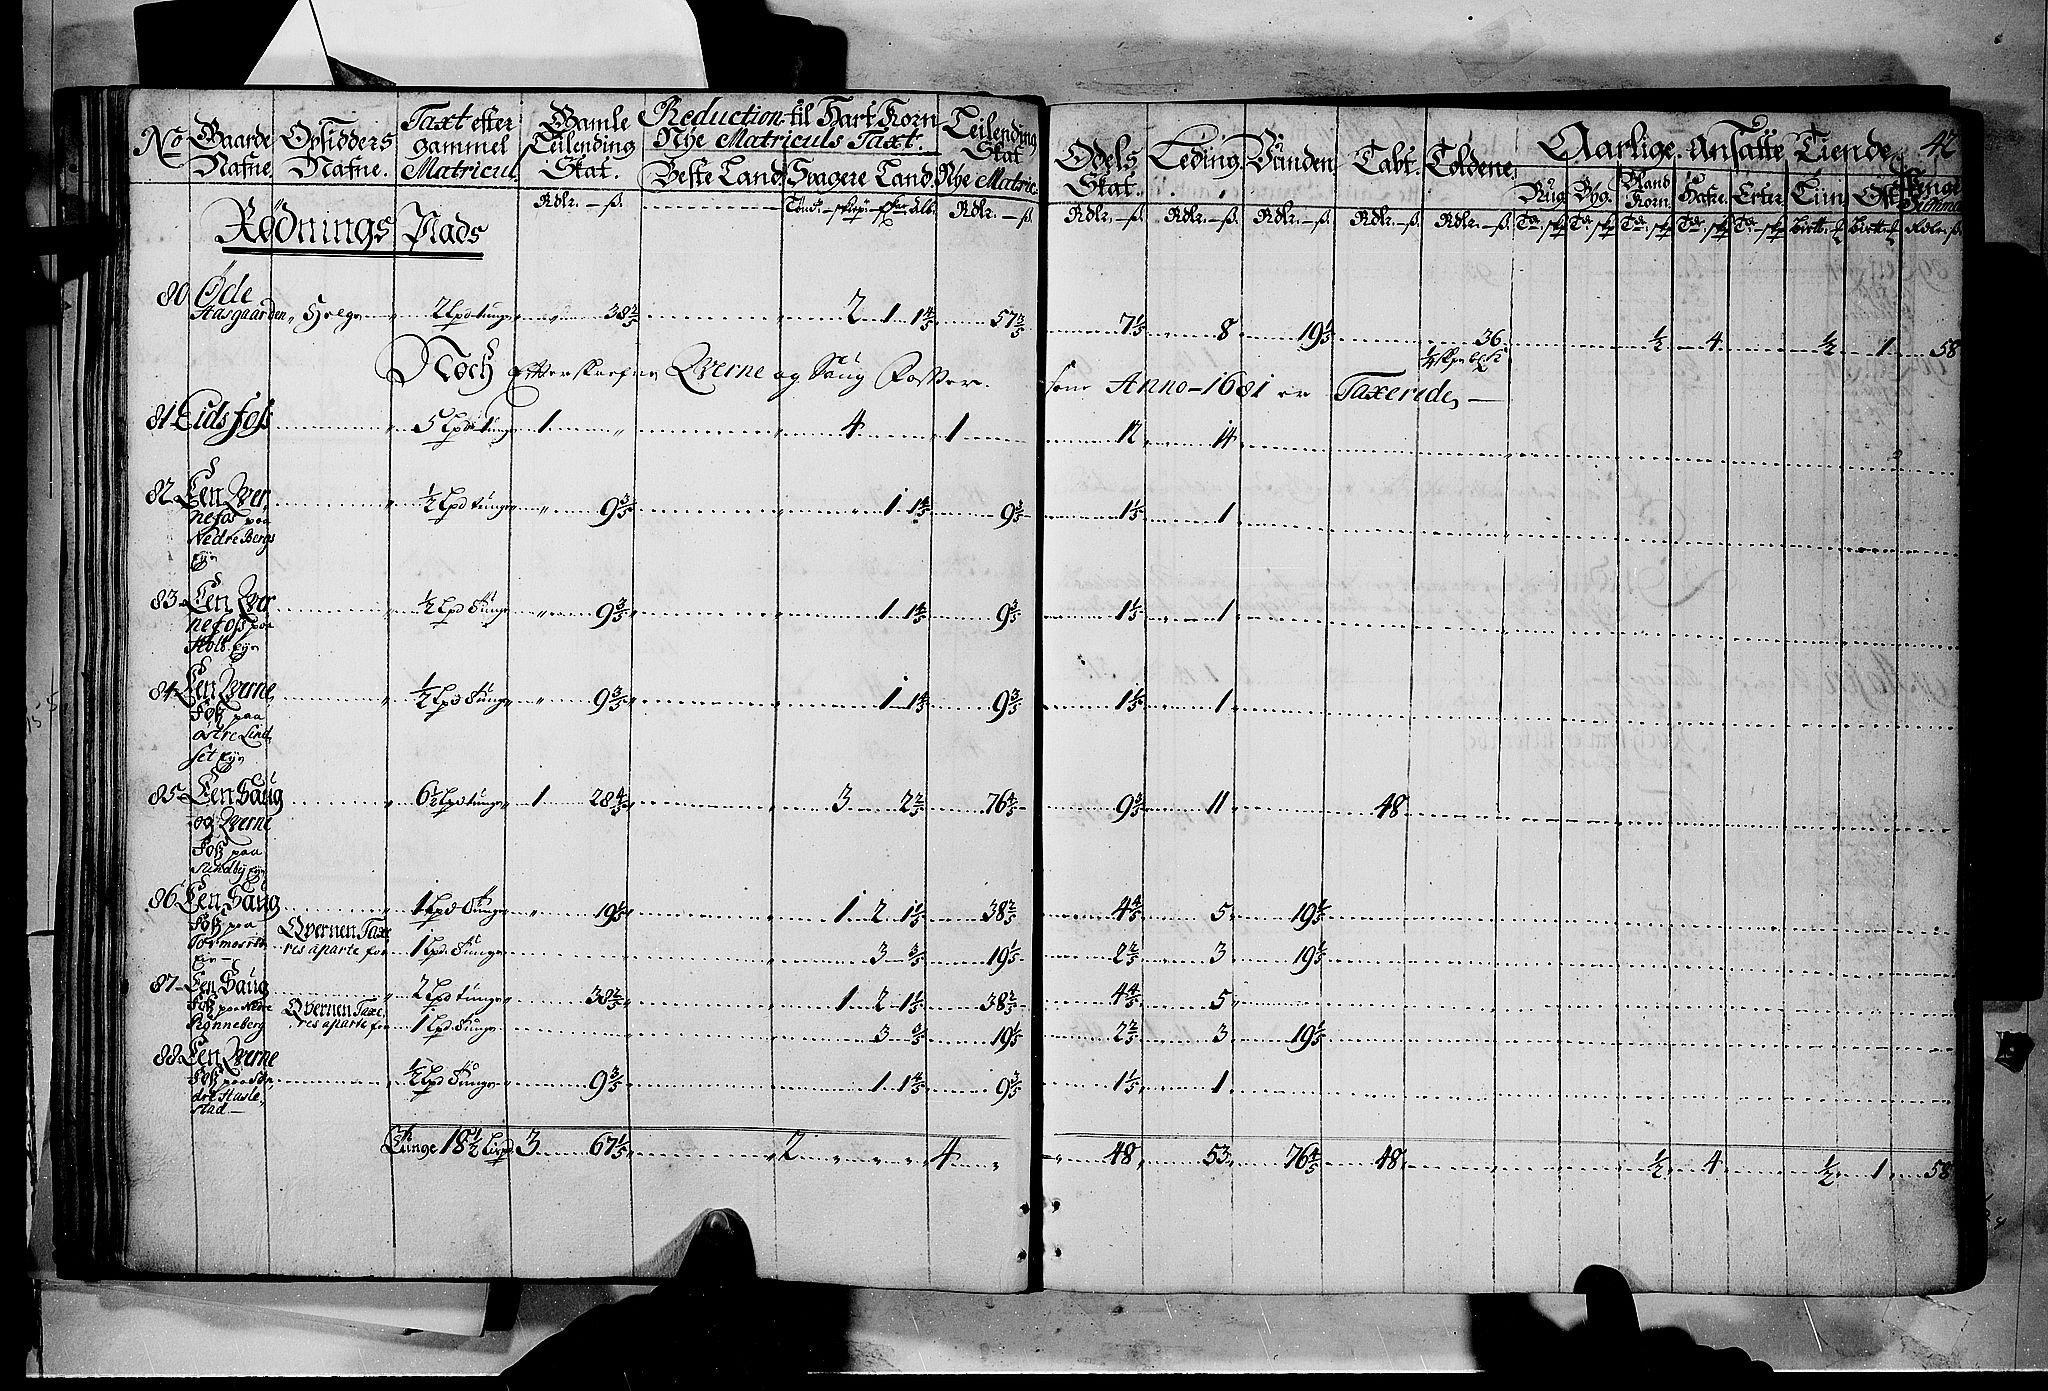 No Gaarde Nafne. Opsidders Nafne. Taxt efter gammel Matricul. Gamle Leilending Skat. Reduction til Hart Korn Nÿe Matriculs Taxt. Leilending Skat
Beste Land Svagere Land Nÿe Matric:
Odels Skat. Leding. Vünden Tabt. Toldene, Aarlige Ansatte Tiende 42
Rug Byg. Bland Korn. Hafre. Erter. Liin Ost
Rdlr. — ß. Rdlr. — ß.
Rdlr. — ß. Rdlr. — ß. Rdlr. — ß. Rdlr. — ß. Rdlr. — ß.
Rødnings Plads
80 Øde Aasgaarden Helge 2 Lpd tunge 38 2/5 2 1 1 4/5 57 3/5 7 1/5 8 19 1/5 36 1/2 4 1/2 1 58
Noch Efterskrefne Qverne og Saug Fosser. som Anno 1681 er Taxerede,
81 Eids foss 5 Lpd t 1 4 1 12 14
82 Een Qver
nefos paa
Nedre Bergs
Eye 1/2 Lpd tunge 9 3/5 1 1 4/5 9 3/5 1 1/5 1
83 Een Qver
nefoss paa
Hols Eye 1/2 Lpd Tunge 9 3/5 1 1 4/5 9 3/5 1 1/5 1
84 Een Qverne
Foss paa
østre Lind
set Eye 1/2 Lpd Tunge 9 3/5 1 1 4/5 9 3/5 1 1/5 1
85 Een Saug
og Qverne
Foss paa
Sundby Eye 6 1/2 Lpd tunge 1 28 4/5 3 2 2/5 76 4/5 9 3/5 11 48
86 Een Saug
Foss paa
1 Lpd Tunge 19 1/5 1 2 1 1/5 38 2/5 4 4/5 5 19 1/5
Qvernen Taxe
res aparte for 1 Lpd Tunge 3 3/5 19 1/5 2 2/5 3 19 1/5
87 Een Saug
Foss paa Nedre
Rønneberg 2 Lpd tunge 38 2/5 1 2 1 1/5 38 2/5 4 4/5 5
Qvernen Taxe
res aparte for 1 Lpd Tunge 3 3/5 19 1/5 2 2/5 3 19 1/5
88 Een Qverne
Foss paa Søn
dre Hasle
stad 1/2 Lpd Tunge 9 3/5 1 1 4/5 9 3/5 1 1/5 1
Tunge 18 1/2 Lispd 3 67 1/5 2 4 48 53 76 4/5 48 1/2 4 1/2 1 58